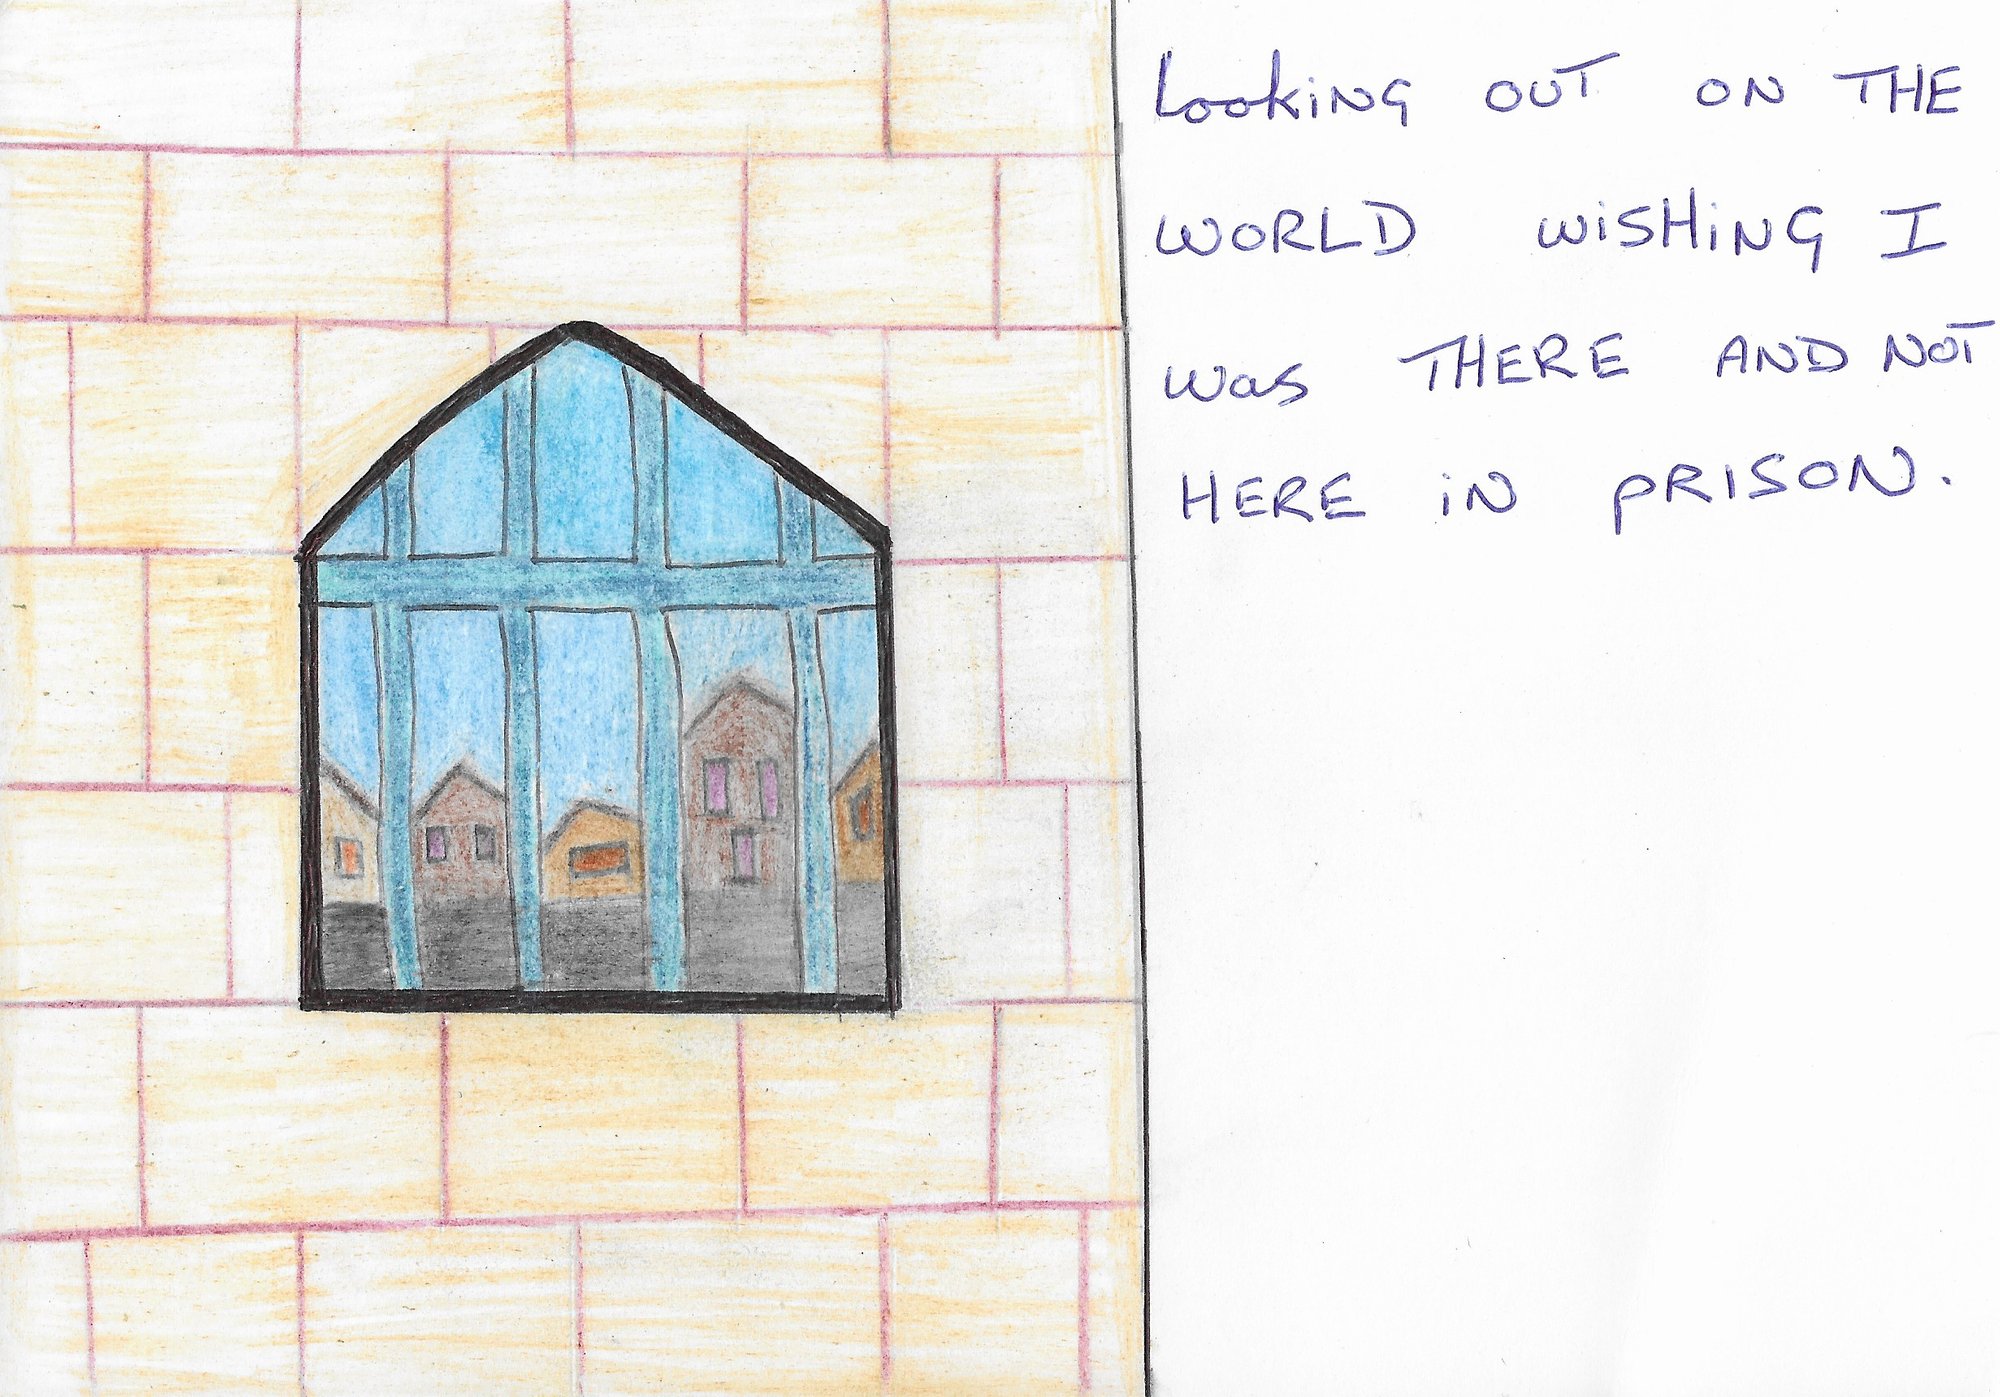 Looking OUT ON THE
WORLD WISHING I
Was THERE AND NOT
HERE IN PRISON.